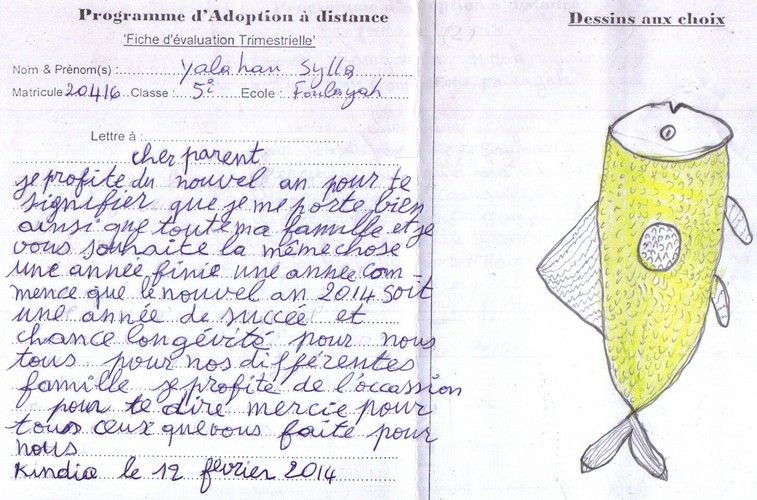 Programme d'Adoption à distance
'Fiche d'évaluation Trimestrielle'
Nom & Prénom(s) : Yalahan Sylla
Matricule 20416 Classe : 5e Ecole : Foulayah
Lettre à :
cher parent
je profite du nouvel an pour te
signifier que je me porte bien
ainsi que toute ma famille et je
vous souhaite la même chose
une année finie une année com-
mence que le nouvel an 2014 soit
une année de succée et
chance longévité pour nous
tous pour nos différentes
famille je profite de l'occassion
pour te dire mercie pour
tous ceux que vous faite pour
nous
Kindia le 12 février 2014
Dessins aux choix